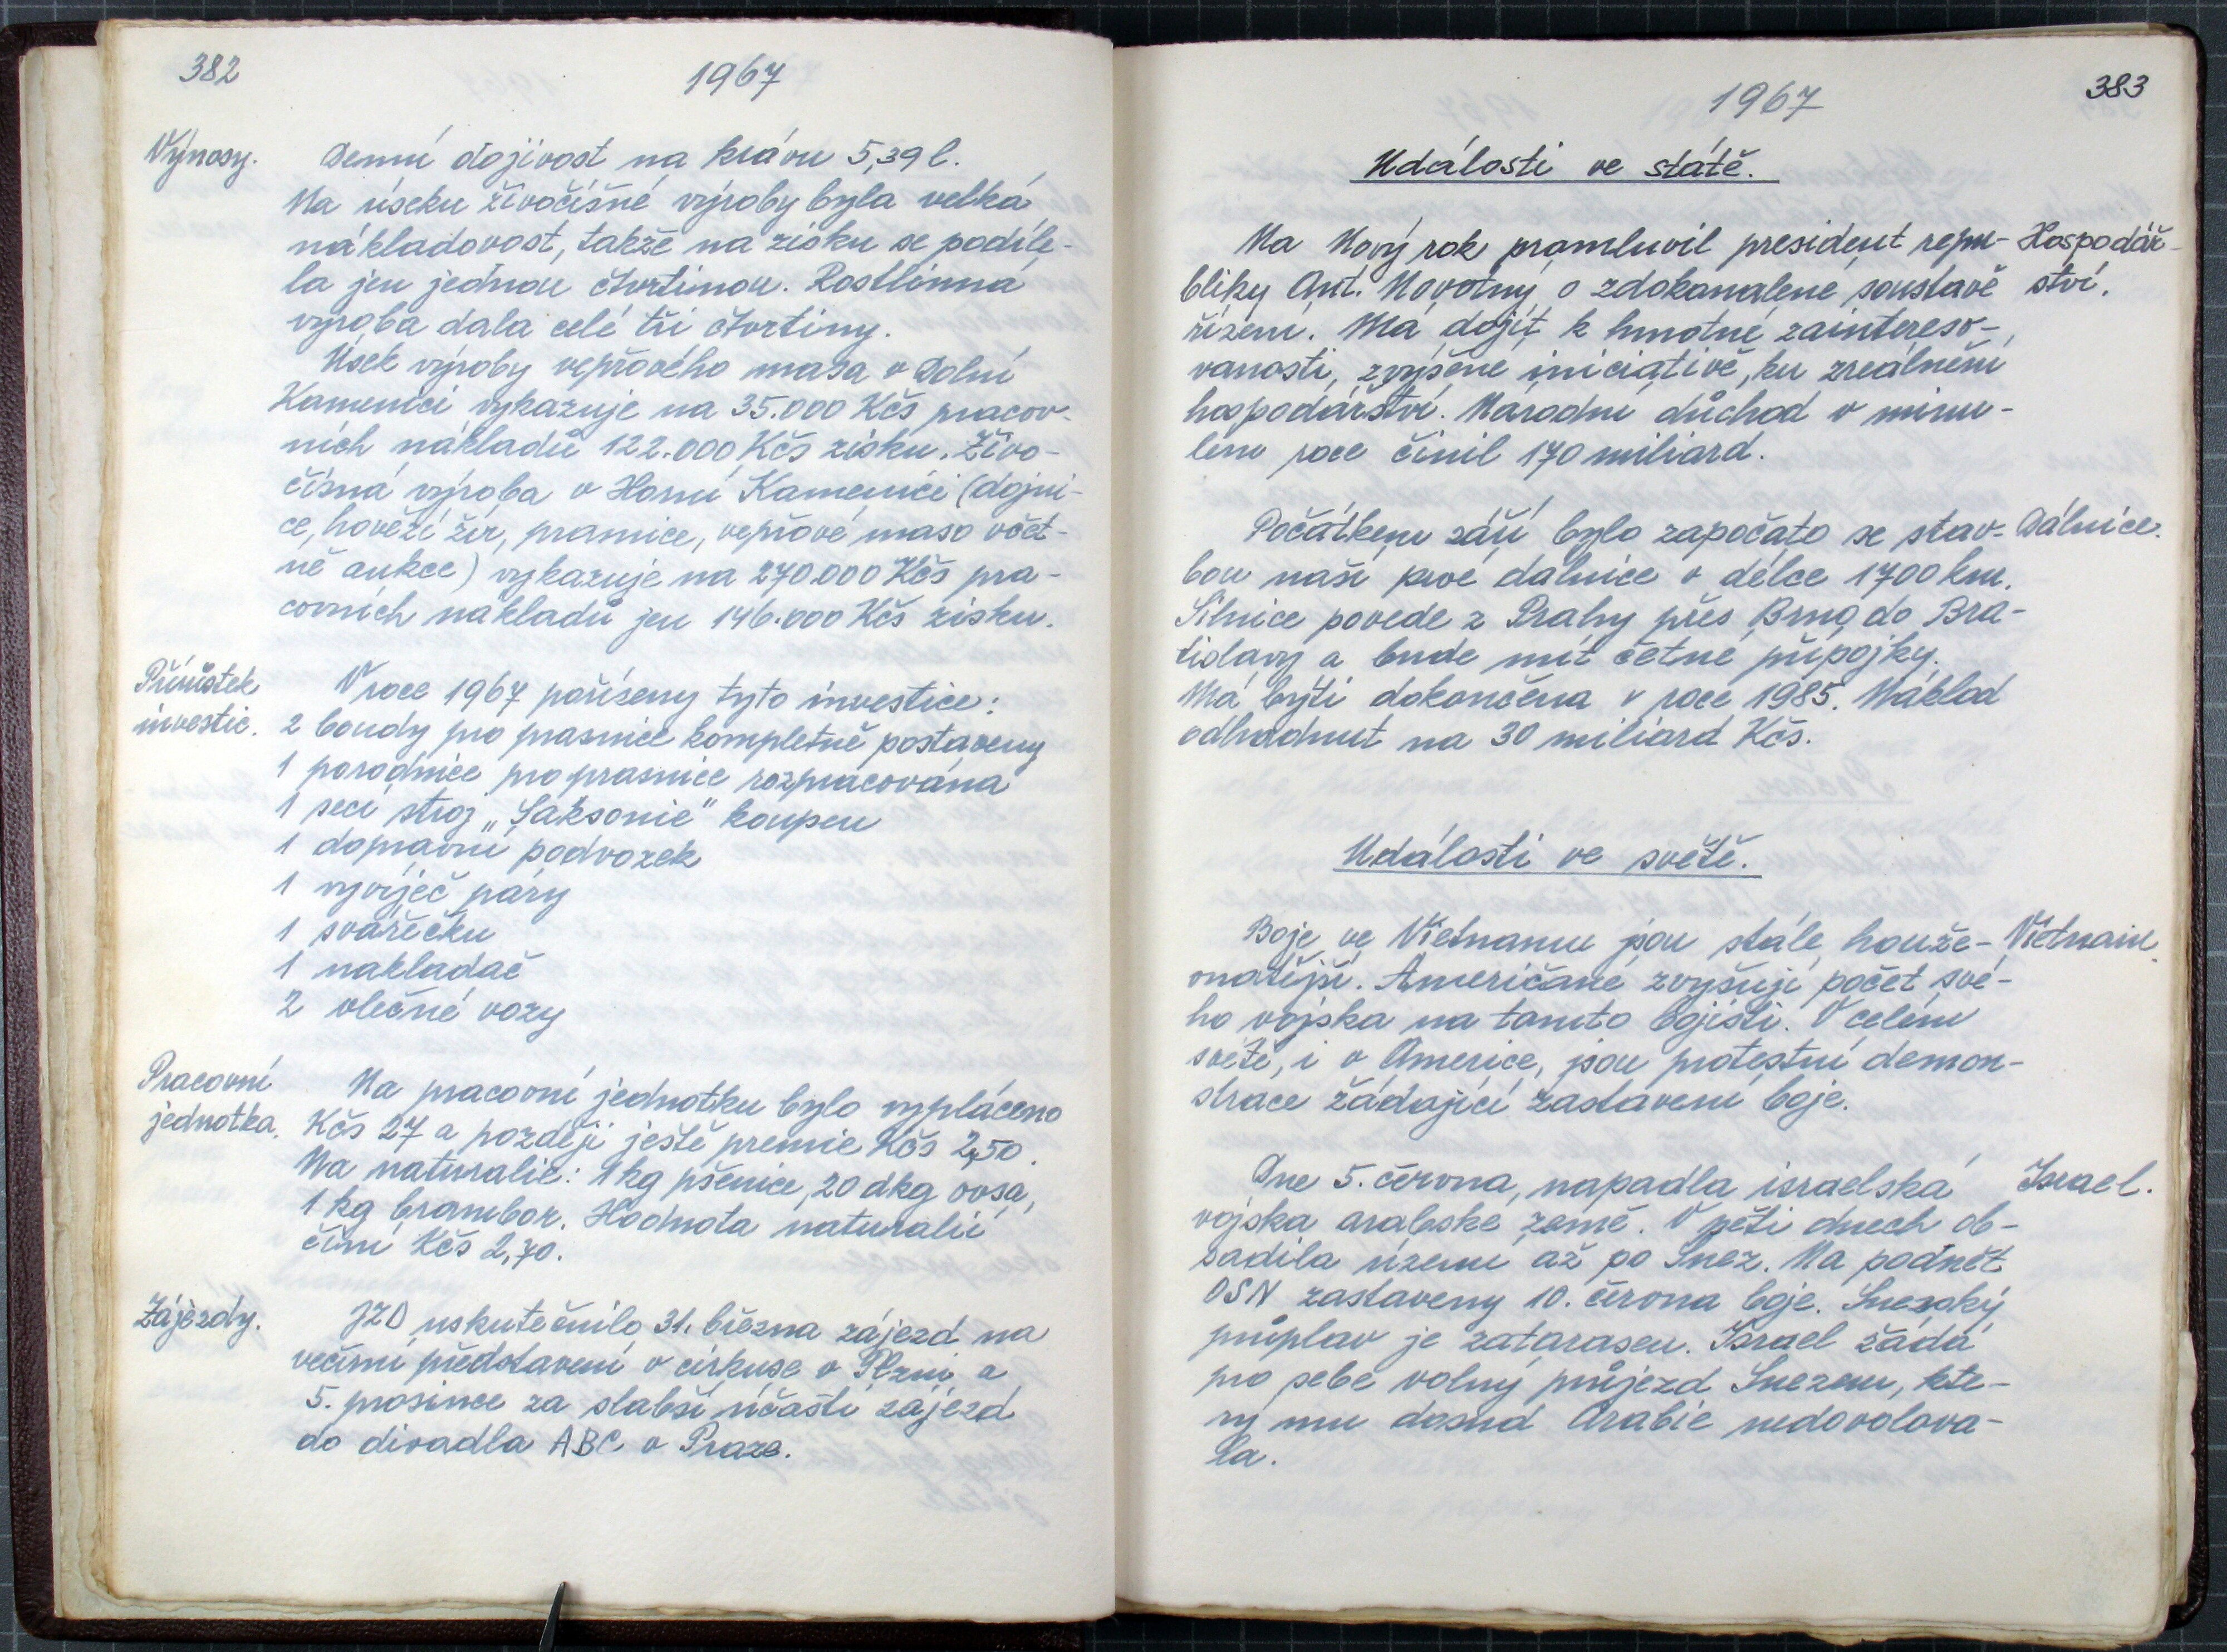 382
1967
Výnosy.
Denní dojivost na krávu 5,39 l.
Na úseku živočišné výroby byla velká
nákladovost, takže na zisku se podíle-
la jen jednou čtvrtinou. Rostlinná
výroba dala celé tři čtvrtiny.
Úsek výroby vepřového masa v Dolní
Kamenici vykazuje na 35.000 Kčs pracov-
ních nákladů 122.000 Kčs zisku. Živo-
čišná výroba v Horní Kamenici (dojni-
ce, hovězí žír, prasnice, vepřové maso včet-
ně aukce) vykazuje na 270.000 Kčs pra-
covních nákladů jen 146.000 Kčs zisku.
Přírůstek
investic.
V roce 1967 pořízeny tyto investice:
2 boudy pro prasnice kompletně postaveny
1 porodnice pro prasnice rozpracována
1 secí stroj „Saksonie" koupen
1 dopravní podvozek
1 vyvíječ páry
1 svářečku
1 nakladač
2 vlečné vozy
Pracovní
jednotka.
Na pracovní jednotku bylo vypláceno
Kčs 27 a později ještě premie Kčs 2,50.
Na naturalie: 1 kg pšenice, 20 dkg ovsa,
1 kg brambor. Hodnota naturalií
činí Kčs 2,70.
Zájezdy.
JZD uskutečnilo 31. března zájezd na
večerní představení v cirkuse v Plzni a
5. prosince za slabší účasti zájezd
do divadla ABC v Praze.
383
1967
Události ve státě.
Na Nový rok promluvil president repu-
bliky Ant. Novotný o zdokonalené soustavě
řízení. Má dojít k hmotné zaintereso-
vanosti, zvýšené iniciativě, ku zreálnění
hospodářství. Národní důchod v minu-
lém roce činil 170 miliard.
Hospodář-
ství.
Počátkem září bylo započato se stav-
bou naší prvé dálnice v délce 1700 km.
Silnice povede z Prahy přes Brno do Bra-
tislavy a bude mít četné přípojky.
Má býti dokončena v roce 1985. Náklad
odhadnut na 30 miliard Kčs.
Dálnice.
Události ve světě.
Boje ve Vietnamu jsou stále houže-
vnatější. Američané zvyšují počet své-
ho vojska na tamto bojišti. V celém
světě, i v Americe, jsou protestní demon-
strace žádající zastavení boje.
Vietnam.
Dne 5. června, napadla israelská
vojska arabské země. V pěti dnech ob-
sadila území až po Suez. Na podnět
OSN zastaveny 10. června boje. Suezský
průplav je zatarasen. Israel žádá
pro sebe volný průjezd Suezem, kte-
rý mu dosud Arabie nedovolova-
la.
Israel.